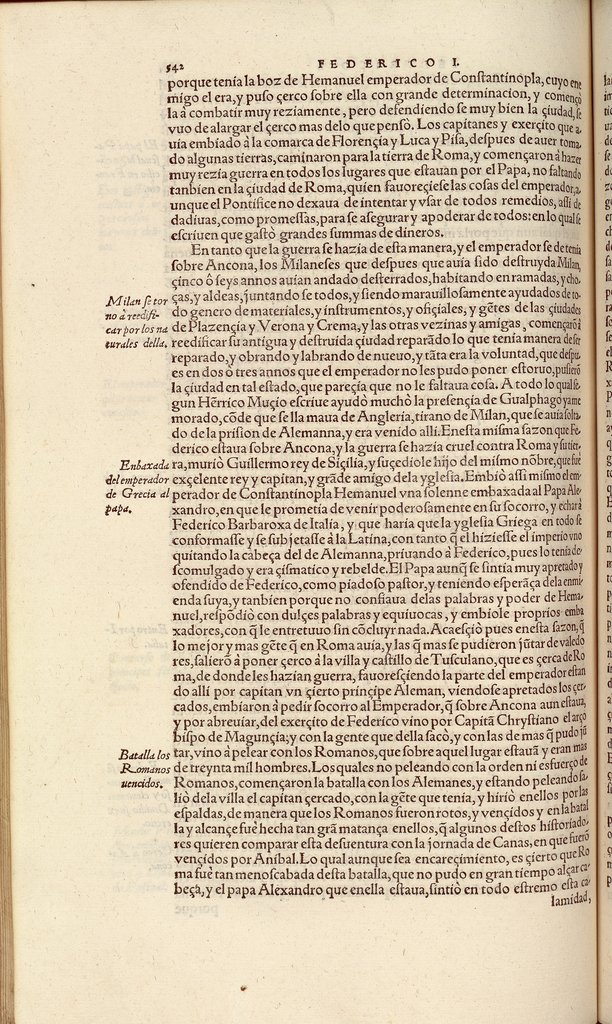 542
FEDERICO I.
porque tenía la boz de Hemanuel emperador de Conſtantínopla, cuyo ene
mígo el era, y puſo çerco ſobre ella con grande determínacíon, y començò
la à combatír muy rezíamente, pero defendíendo ſe muy bíen la çíudad, ſe
vuo de alargar el çerco mas delo que penſò. Los capítanes y exerçíto que a
uía embíado à la comarca de Florençía y Luca y Píſa, deſpues de auer toma
do algunas tíerras, camínaron para la tíerra de Roma, y començaron à hazer
muy rezía guerra en todos los lugares que eſtauan por el Papa, no faltando
tanbíen en la çíudad de Roma, quíen fauoreçíeſe las coſas del emperador, a
unque el Pontífíce no dexaua de íntentar y vſar de todos remedíos, aſſí de
dadíuas, como promeſſas, para ſe aſegurar y apoderar de todos: en lo qual ſe
eſcríuen que gaſtò grandes ſummas de díneros.
En tanto que la guerra ſe hazía de eſta manera, y el emperador ſe de tenía
ſobre Ancona, los Mílaneſes que deſpues que auía ſido deſtruyda Mílan,
çínco ò ſeys annos auían andado deſterrados, habítando en ramadas, y cho
Milan ſe tor
no à reedifi-
car por los na
turales della.
ças, y aldeas, juntando ſe todos, y ſíendo marauílloſamente ayudados de to-
do genero de materíales, y ínſtrumentos, y ofiçíales, y gẽtes de las çíudades
de Plazençía y Verona y Crema, y las otras vezínas y amígas, començarõ à
reedíficar ſu antígua y deſtruída çíudad reparãdo lo que tenía manera de ſer
reparado, y obrando y labrando de nueuo, y tãta era la voluntad, que deſpu
es en dos ò tres annos que el emperador no les pudo poner eſtoruo, puſierõ
la çíudad en tal eſtado, que pareçía que no le faltaua coſa. A todo lo qual ſe
gun Hẽrríco Muçío eſcríue ayudò muchò la preſençía de Gualphagò yame
morado, cõde que ſe lla maua de Anglería, tírano de Mílan, que ſe auía ſolta
do de la príſíon de Alemanna, y era venído allí. Eneſta míſma ſazon que Fe-
deríco eſtaua ſobre Ancona, y la guerra ſe hazía cruel contra Roma y ſu tíer-
Enbaxada
del emperador
de Grecia al
papa.
ra, muríò Guíllermo rey de Síçílía, y ſuçedíole híjo del míſmo nõbre, que fuè
exçelente rey y capítan, y grãde amígo dela ygleſía. Embíò aſſí míſmo el em-
perador de Conſtantínopla Hemanuel vna ſolenne embaxada al Papa Ale-
xandro, en que le prometía de venír poderoſamente en ſu ſocorro, y echarà
Federíco Barbaroxa de Italía, y que haría que la ygleſía Gríega en todo ſe
conformaſſe y ſe ſubjetaſſe à la Latína, con tanto q̃ el híziеſſe el ímperío vno
quítando la cabeça del de Alemanna, príuando à Federíco, pues lo tenía de-
ſcomulgado y era çíſmatíco y rebelde. El Papa aunq̃ ſe ſintía muy apretado y
ofendído de Federíco, como píadoſo paſtor, y teníendo eſperãça dela enmi-
enda ſuya, y tanbíen porque no confiaua delas palabras y poder de Hema-
nuel, reſpõdíò con dulçes palabras y equíuocas, y embíole propríos emba
xadores, con q̃ le entretuuo ſin cõcluyr nada. Acaeſçíò pues eneſta ſazon, q̃
lo mejor y mas gẽte q̃ en Roma auía, y las q̃ mas ſe pudíeron jũtar de valedo
res, ſalíerõ à poner çerco à la vílla y caſtíllo de Tuſculano, que es çerca de Ro
ma, de donde les hazían guerra, fauoreſçíendo la parte del emperador eſtan
do allí por capítan vn çíerto prínçípe Aleman, víendoſe apretados los çer-
cados, embíaron à pedír ſocorro al Emperador, q̃ ſobre Ancona aun eſtaua,
y por abreuíar, del exerçíto de Federíco víno por Capítã Chryſtíano el arço
bíſpo de Magunçía; y con la gente que della ſacò, y con las de mas q̃ pudo jũ
Batalla los
Romanos
uencidos.
tar, víno à pelear con los Romanos, que ſobre aquel lugar eſtauã y eran mas
de treynta míl hombres. Los quales no peleando con la orden ni esfuerço de
Romanos, començaron la batalla con los Alemanes, y eſtando peleando ſa-
líò dela vílla el capítan çercado, con la gẽte que tenía, y híríò enellos por las
eſpaldas, de manera que los Romanos fueron rotos, y vençídos y en la batal
la y alcançe fuè hecha tan grã matança enellos, q̃ algunos deſtos híſtoríado-
res quíeren comparar eſta deſuentura con la jornada de Canas, en que fuerõ
vençídos por Aníbal. Lo qual aunque ſea encareçímíento, es çíerto que Ro
ma fuè tan menoſcabada deſta batalla, que no pudo en gran tíempo alçar ca
beça, y el papa Alexandro que enella eſtaua, ſintíò en todo eſtremo eſta ca-
lamídad,